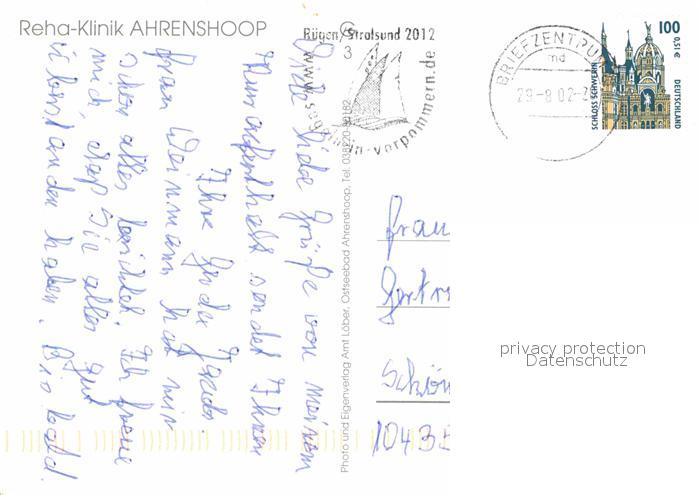 Reha-Klinik AHRENSHOOP
Rügen/Stralsund 2012
3
www.segeln-in-vorpommern.de
BRIEFZENTRUM
md
29-8.02-2
100
0,51 €
SCHLOSS SCHWERIN
DEUTSCHLAND
Liebe Grüße von meinem
Kuraufenthalt sendet Ihnen
Ihre Gerda
Frau Weinmann hat mir
schon alles berichtet. Ich freue
mich, dass Sie alles gut
überstanden haben. Bis bald.
Photo und Eigenverlag Amt Löber, Ostseebad Ahrenshoop, Tel. 038220-80182
Frau
Gertr
Schön
10435
privacy protection
Datenschutz